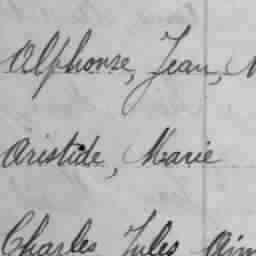 Alphonse, Jean,
Aristide, Marie
Charles Jules